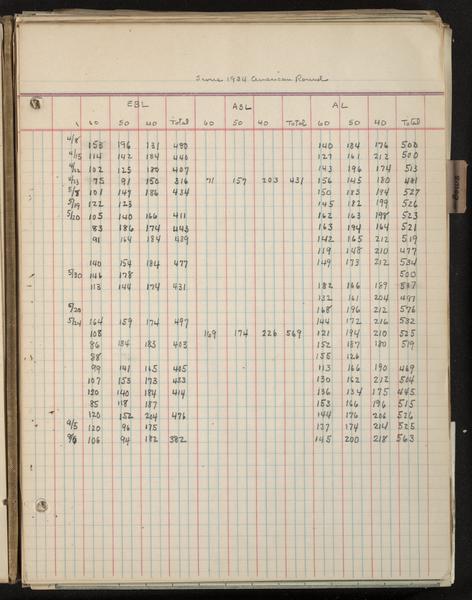 1934 American Round
EBL ASL AL
60 50 40 Total 60 50 40 Total 60 50 40 Total
4/8 153 196 131 480 140 184 176 500
4/15 114 142 184 440 127 161 212 500
4/22 102 125 180 407 143 196 174 513
75 91 150 316 71 157 203 431 156 145 180 481
5/8 101 147 186 434 150 183 194 527
5/19 122 123 145 182 199 526
5/20 105 140 166 411 162 163 198 523
83 186 174 443 163 194 164 521
91 164 184 439 142 165 212 519
119 148 210 477
140 154 184 477 149 173 212 534
5/30 146 178 500
113 144 174 431 182 166 189 537
132 161 204 497
5/20 168 196 212 576
5/24 164 159 174 497 144 172 216 532
108 169 174 226 569 121 194 210 525
86 134 183 403 152 187 180 519
88 155 126
99 141 165 405 113 166 190 469
107 153 173 433 130 162 212 504
120 140 184 414 136 134 175 445
85 118 187 153 166 196 515
120 152 204 476 144 176 206 526
9/5 120 96 175 137 174 214 525
9/6 106 94 182 382 145 200 218 563